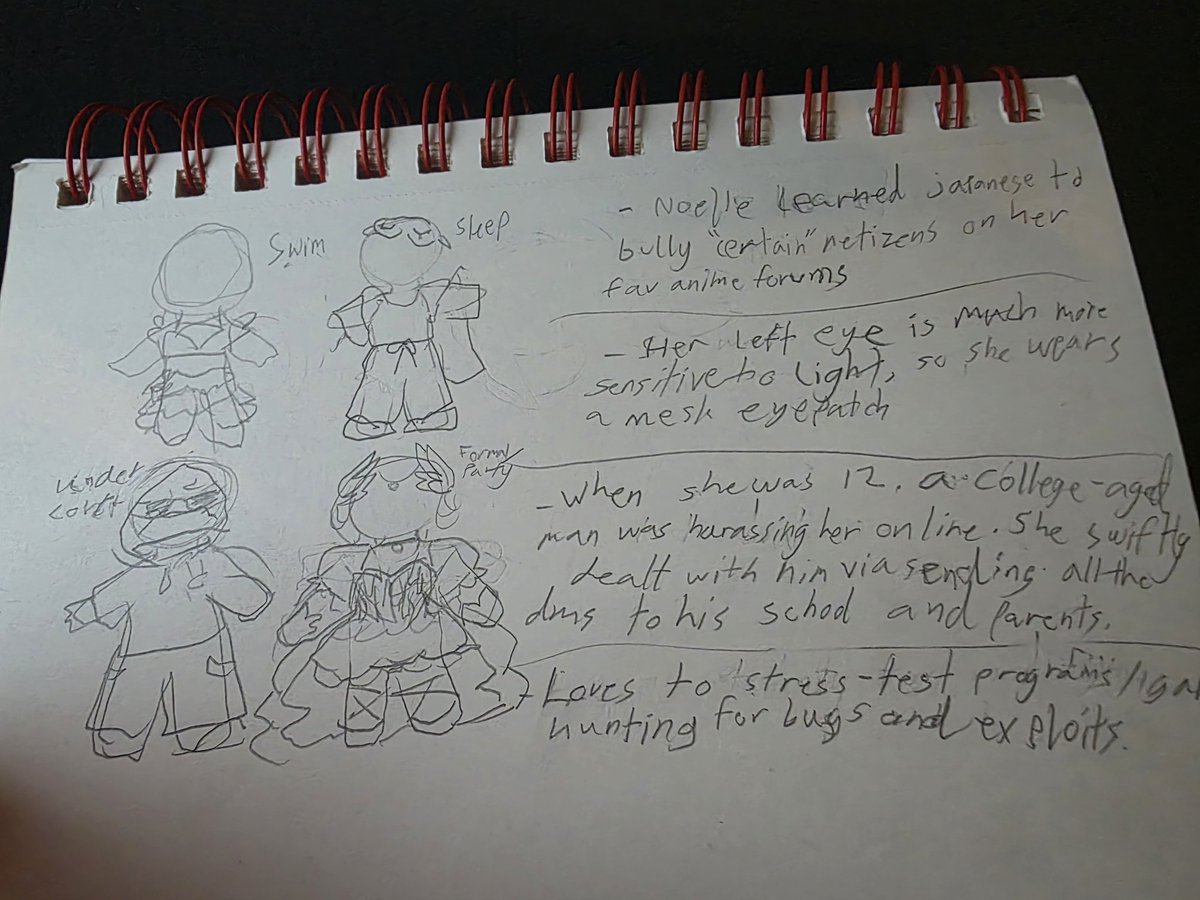 Swim
sleep
under
Formal
Party
- Noelle learned japanese to
bully "certain" netizens on her
fav anime forums
- Her left eye is much more
sensitive to light, so she wears
a mesh eyepatch
- When she was 12, a college-aged
man was harassing her online. She swiftly
dealt with him via sending all the
dms to his school and parents.
- Loves to "stress-test programs/
hunting for bugs and exploits.